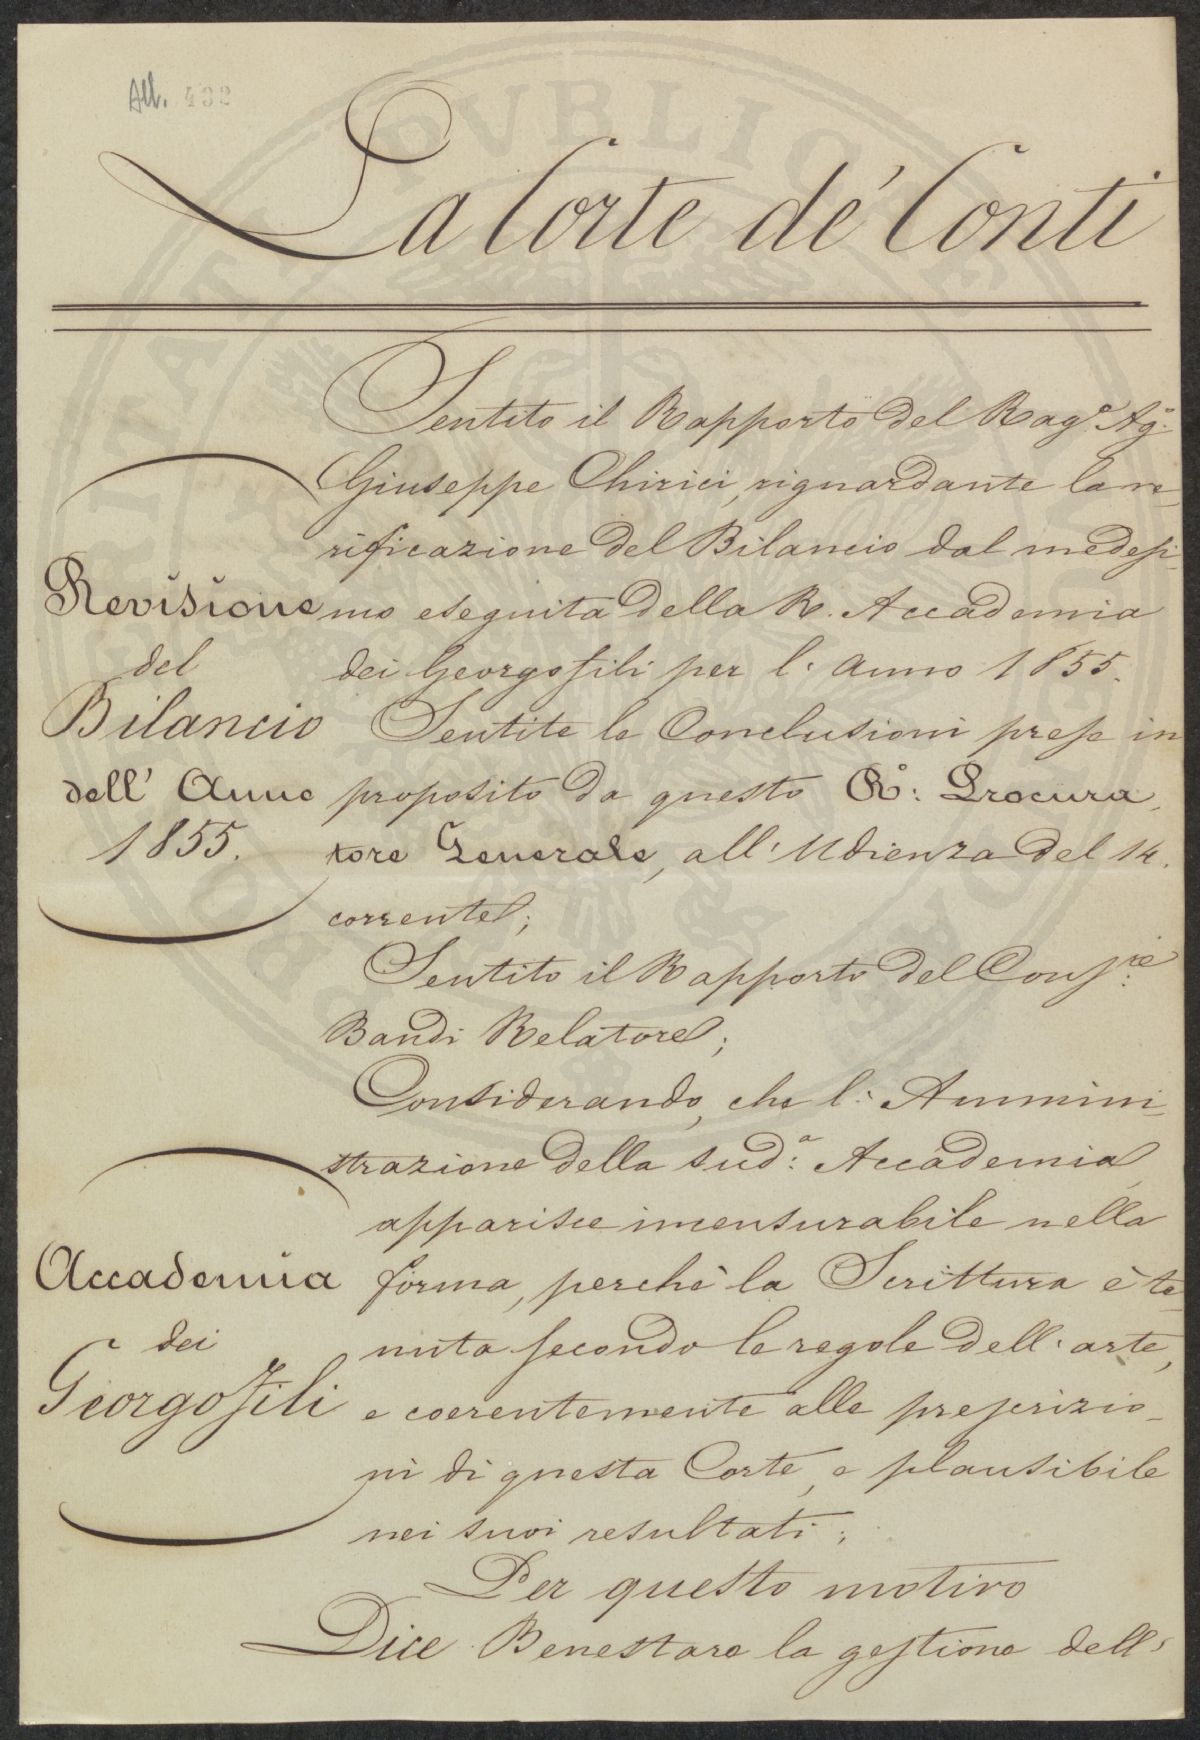 All. 432
La Corte de' Conti
Sentito il Rapporto del Rag.e Ag.o
Giuseppe Chirici, riguardante la ve-
rificazione del Bilancio dal medesi-
mo eseguita della R. Accademia
dei Georgofili per l'Anno 1855.
Sentite le Conclusioni prese in
proposito da questo R.o: Procura-
tore Generale, all'Udienza del 14.
corrente;
Sentito il Rapporto del Cons.re:
Bandi Relatore;
Considerando, che l'Ammini-
strazione della sud.a: Accademia,
apparisce incensurabile nella
forma, perchè la Scrittura è te-
nuta secondo le regole dell'arte,
e coerentemente alle prescrizio-
ni di questa Corte, e plausibile
nei suoi resultati;
Per questo motivo
Dice Benestare la gestione dell'
Revisione
del
Bilancio
dell' Anno
1855.
Accademia
dei
Georgofili